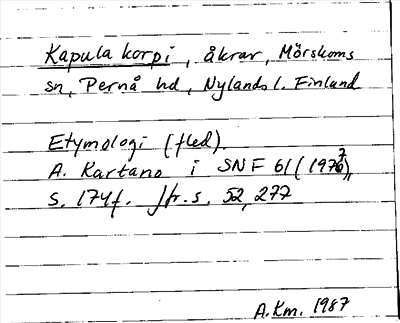 Kapula korpi, åkrar, Mörskoms
sn, Pernå hd, Nylands l. Finland
Etymologi (fled).
A. Kartano i SNF 61 (1977),
s. 174f. Jfr. s. 52, 277
A.Km. 1987